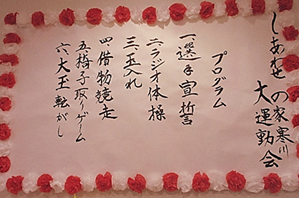 しあわせの家寒川
大運動会
プログラム
一、選手宣誓
二、ラジオ体操
三、玉入れ
四、借物競走
五、椅子取りゲーム
六、大玉転がし